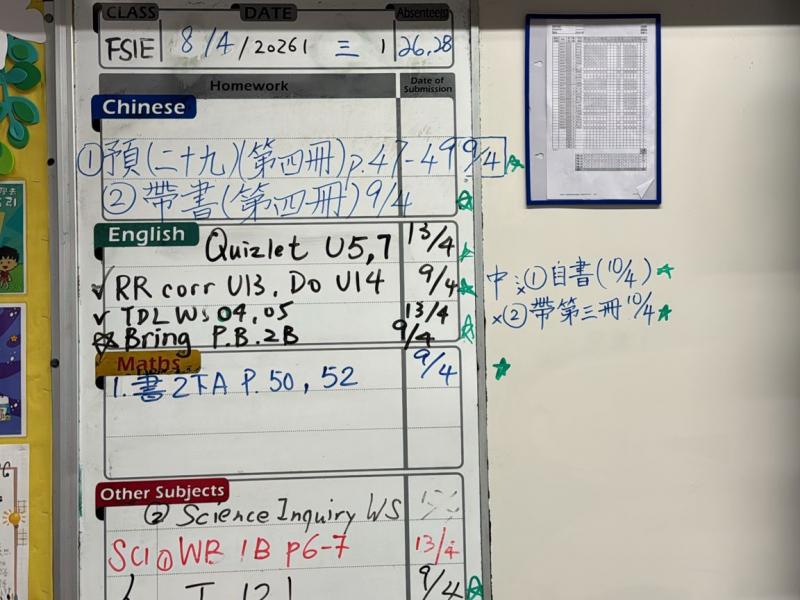 CLASS DATE Absentee(s)
FSIE 8/4/2026 三 26,28
Homework Date of Submission
Chinese
①預(二十九)(第四冊)p.47-49 9/4
②帶書(第四冊) 9/4
English
Quizlet U5,7 13/4
RR corr U13, Do U14 9/4
TDL WS 04,05 13/4
Bring P.B.2B 9/4
中:①自書(10/4)
×②帶第三冊 10/4
Maths
1.書2下A P.50,52 9/4
Other Subjects
② Science Inquiry WS
SCI ① WB 1B p6-7 13/4
9/4